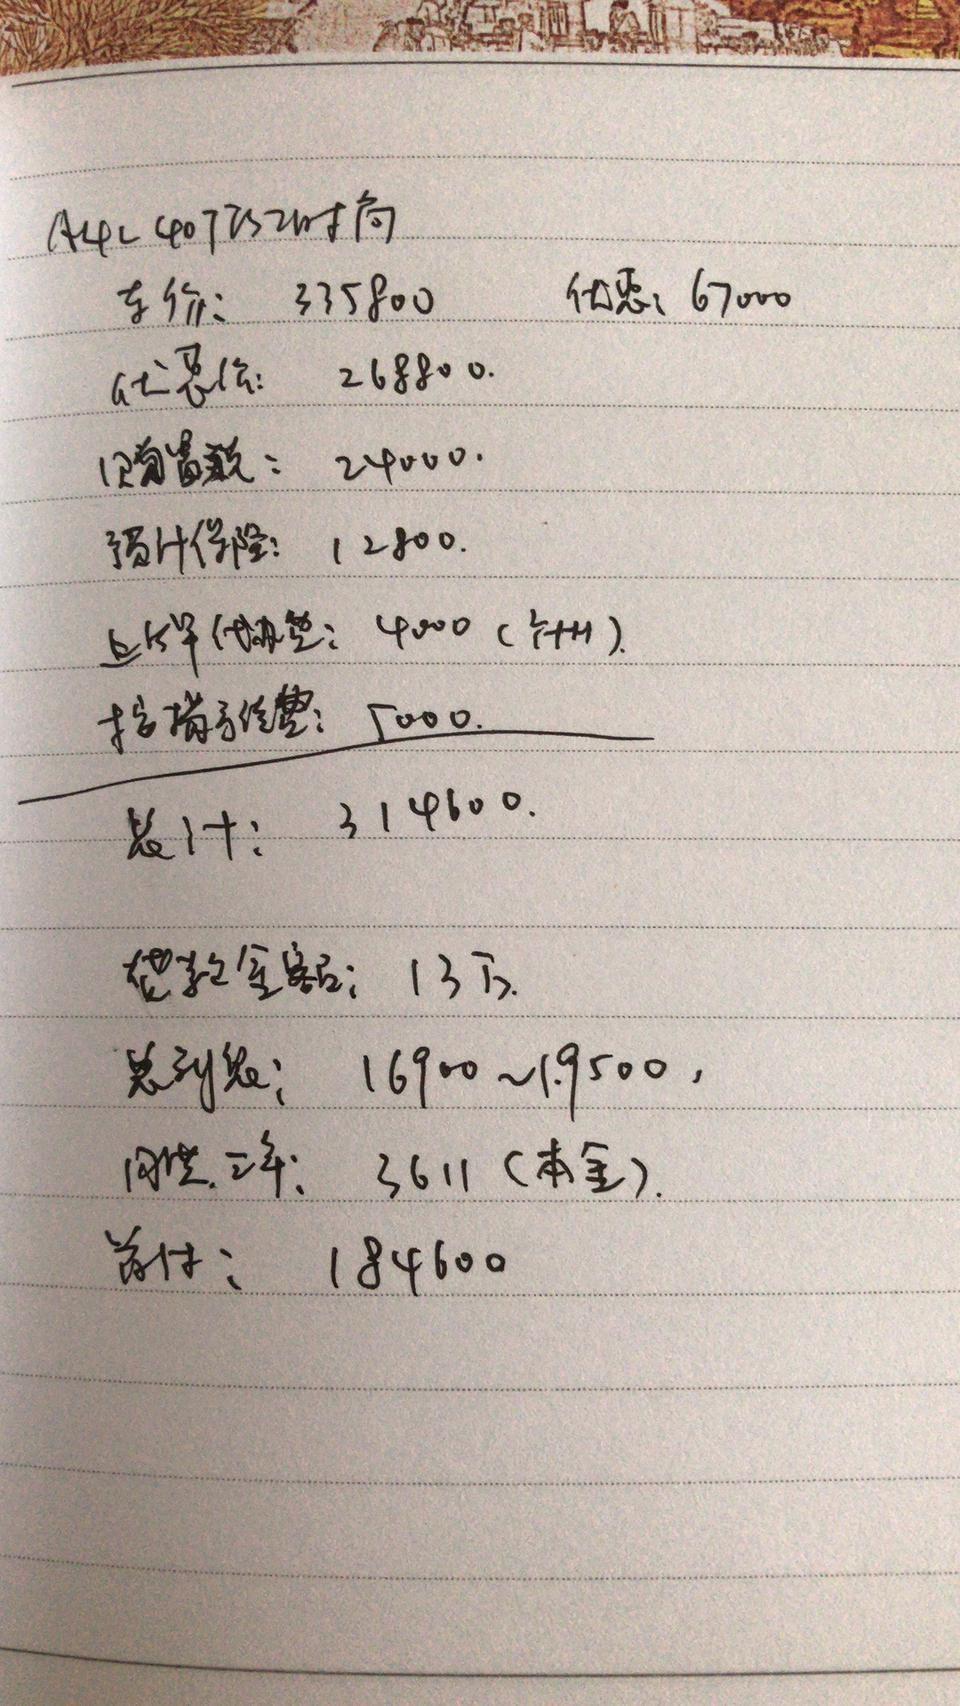 A4L 40TFSI时尚
车价: 335800 优惠: 67000
优惠价: 268800.
购置税: 24000.
预计保险: 12800.
上牌代办费: 4000 (苏州).
按揭手续费: 5000.
总计: 314600.
贷款金额: 13万.
总利息: 16900~19500.
月供.三年: 3611 (本金).
首付: 184600